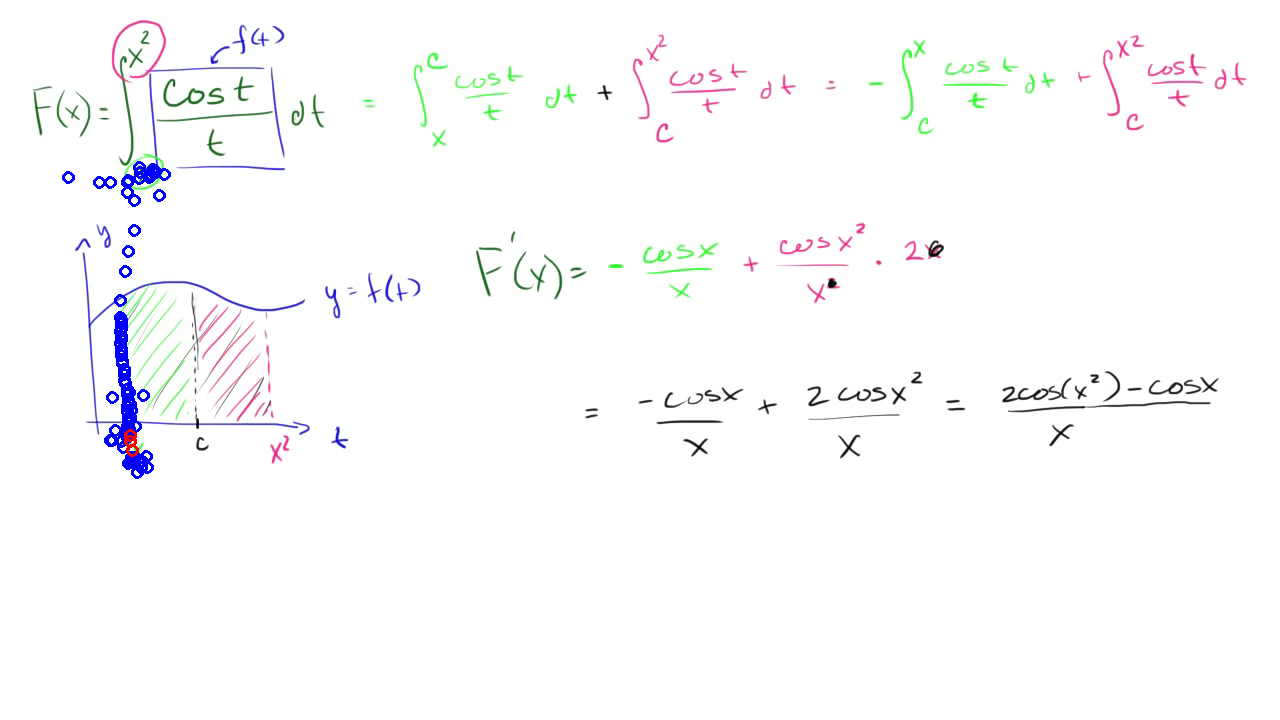 f(t)
F(x) = ∫^{x²} cos t / t dt = ∫_x^c cos t / t dt + ∫_c^{x²} cos t / t dt = - ∫_c^x cos t / t dt + ∫_c^{x²} cos t / t dt
y
F'(x) = - cos x / x + cos x² / x · 2
y = f(t)
= -cos x / x + 2 cos x² / x = 2cos(x²) - cos x / x
c x² t